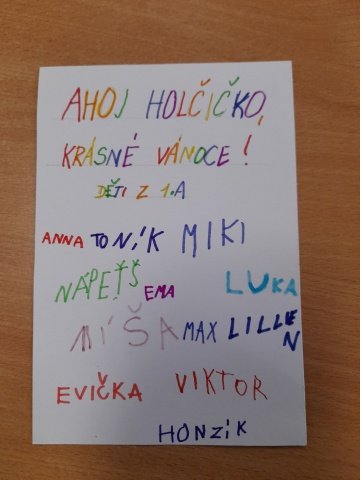 AHOJ HOLČIČKO,
KRÁSNÉ VÁNOCE!
DĚTI Z 1.A
ANNA TONÍK MIKI
NÁPEŤŠ EMA LUKA
MÍŠA MAX LILLIEN
EVIČKA VIKTOR
HONZÍK